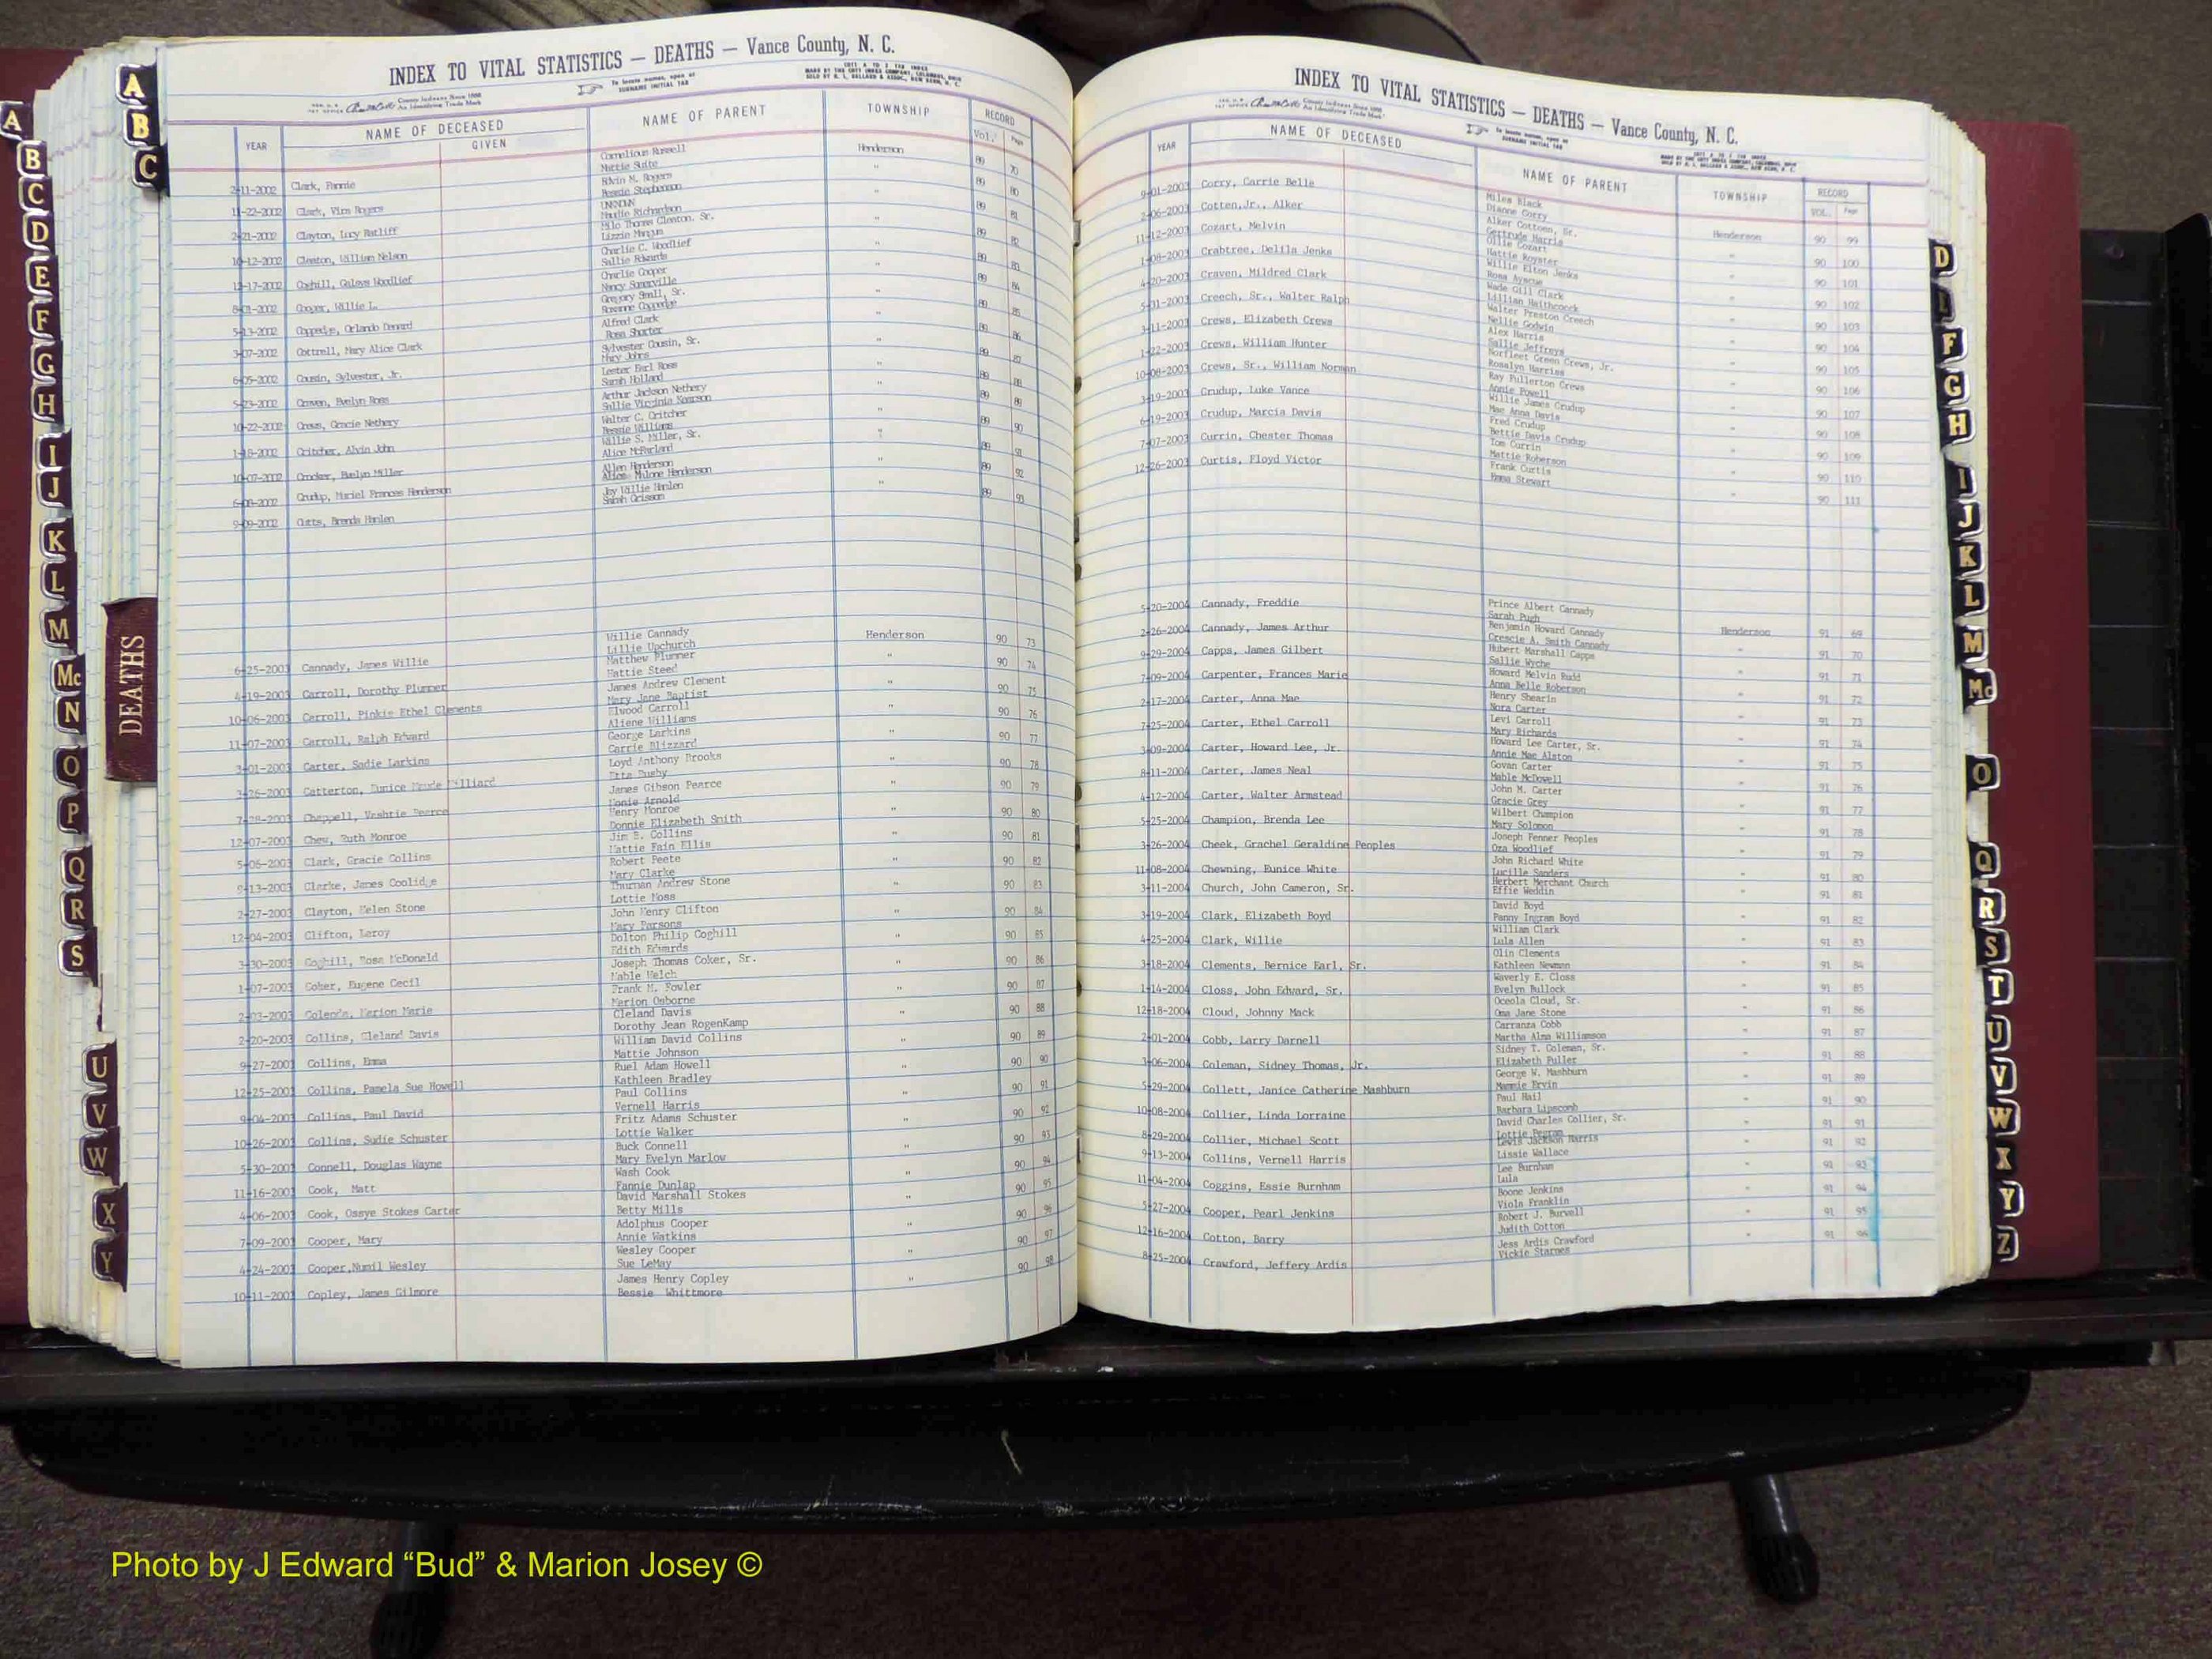 INDEX TO VITAL STATISTICS — DEATHS — Vance County, N. C.
To locate names, open at
SURNAME INITIAL TAB
County Indexes Since 1888
An Identifying Trade Mark
YEAR NAME OF DECEASED NAME OF PARENT TOWNSHIP RECORD
GIVEN Vol. Page
2-11-2002 Clark, Fannie Cornelious Russell Henderson 89 70
Mattie Suite
11-22-2002 Clark, Vira Rogers Edwin M. Rogers " 89 80
Bessie Stephenson
2-21-2002 Clayton, Lucy Ratliff UNKNOWN " 89 81
Maudie Richardson
10-12-2002 Cleaton, William Nelson Milo Thomas Cleaton, Sr. " 89 82
Lizzie Mangum
12-17-2002 Coghill, Galeys Woodlief Charlie C. Woodlief " 89 83
Sallie Edwards
8-01-2002 Cooper, Willie L. Charlie Cooper " 89 84
Nancy Somerville
5-13-2002 Coppedge, Orlando Denard Gregory Small, Sr. " 89 85
Roxanne Coppedge
3-07-2002 Cottrell, Mary Alice Clark Alfred Clark " 89 86
Rosa Shorter
6-05-2002 Cousin, Sylvester, Jr. Sylvester Cousin, Sr. " 89 87
Mary Johns
5-23-2002 Craven, Evelyn Ross Lester Earl Ross " 89 88
Sarah Holland
10-22-2002 Crews, Gracie Nethery Arthur Jackson Nethery " 89 89
Sallie Virginia
1-18-2002 Critcher, Alvin John Walter C. Critcher " 89 90
Bessie Williams
10-07-2002 Crocker, Evelyn Miller Willie S. Miller, Sr. " 89 91
Alice McFarland
6-08-2002 Crudup, Muriel Frances Henderson Allen Henderson " 89 92
Malone Henderson
9-09-2002 Cutts, Brenda Hanlen Joy Willie Hanlen " 89 93
Sarah Grissom
6-25-2003 Cannady, James Willie Willie Cannady Henderson 90 73
Lillie Upchurch
4-19-2003 Carroll, Dorothy Plummer Matthew Plummer " 90 74
Hattie Steed
10-06-2003 Carroll, Pinkie Ethel Clements James Andrew Clement " 90 75
Mary Jane Baptist
11-07-2003 Carroll, Ralph Edward Elwood Carroll " 90 76
Aliene Williams
3-01-2003 Carter, Sadie Larkins George Larkins " 90 77
Carrie Blizzard
3-26-2003 Catterton, Eunice Maude Loyd Anthony Brooks " 90 78
Etta Busby
7-28-2003 Chappell, Vashtie Pearce James Gibson Pearce " 90 79
Monie Arnold
12-07-2003 Chew, Ruth Monroe Henry Monroe " 90 80
Donnie Elizabeth Smith
5-06-2003 Clark, Gracie Collins Jim B. Collins " 90 81
Mattie Fain Ellis
9-13-2003 Clarke, James Coolidge Robert Peete " 90 82
Mary Clarke
2-27-2003 Clayton, Helen Stone Thurman Andrew Stone " 90 83
Lottie Moss
12-04-2003 Clifton, Leroy John Henry Clifton " 90 84
Mary Parsons
3-30-2003 Coghill, Rosa McDonald Dolton Philip Coghill " 90 85
Edith Edwards
1-07-2003 Coker, Eugene Cecil Joseph Thomas Coker, Sr. " 90 86
Mable Welch
2-03-2003 Marion Marie Frank M. Fowler " 90 87
Marion Osborne
2-20-2003 Collins, Cleland Davis Cleland Davis " 90 88
Dorothy Jean RogenKamp
9-27-2003 Collins, Emma William David Collins " 90 89
Mattie Johnson
12-25-2003 Collins, Pamela Sue Howell Ruel Adam Howell " 90 90
Kathleen Bradley
9-04-2003 Collins, Paul David Paul Collins " 90 91
Vernell Harris
10-26-2003 Collins, Sudie Schuster Fritz Adams Schuster " 90 92
Lottie Walker
5-30-2003 Connell, Douglas Wayne Buck Connell " 90 93
Mary Evelyn Marlow
11-16-2003 Cook, Matt Wash Cook " 90 94
Fannie Dunlap
4-06-2003 Cook, Ossye Stokes Carter David Marshall Stokes " 90 95
Betty Mills
7-09-2003 Cooper, Mary Adolphus Cooper " 90 96
Annie Watkins
4-24-2003 Cooper,Numil Wesley Wesley Cooper " 90 97
Sue LeMay
10-11-2003 Copley, James Gilmore James Henry Copley " 90 98
Bessie Whittmore
INDEX TO VITAL STATISTICS — DEATHS — Vance County, N. C.
To locate names, open at
SURNAME INITIAL TAB
YEAR NAME OF DECEASED NAME OF PARENT TOWNSHIP RECORD
VOL. Page
9-01-2003 Corry, Carrie Belle Miles Black Henderson 90 99
Dianne Corry
2-06-2003 Cotten,Jr., Alker Alker Cottoen, Sr. " 90 100
Gertrude Harris
11-12-2003 Cozart, Melvin Ollie Cozart " 90 101
Hattie Royster
1-08-2003 Crabtree, Delila Jenks Willie Elton Jenks " 90 102
Rosa Ayscue
4-20-2003 Craven, Mildred Clark Wade Gill Clark " 90 103
Lillian Haithcocck
5-31-2003 Creech, Sr., Walter Ralph Walter Preston Creech " 90 104
Nellie Godwin
3-11-2003 Crews, Elizabeth Crews Alex Harris " 90 105
Sallie Jeffreys
1-22-2003 Crews, William Hunter Norfleet Green Crews, Jr. " 90 106
Rosalyn Harriss
10-08-2003 Crews, Sr., William Norman Ray Fullerton Crews " 90 107
Annie Powell
3-19-2003 Crudup, Luke Vance Willie James Crudup " 90 108
Mae Anna Davis
6-19-2003 Crudup, Marcia Davis Fred Crudup " 90 109
Bettie Davis Crudup
7-07-2003 Currin, Chester Thomas Tom Currin " 90 110
Mattie Roberson
12-26-2003 Curtis, Floyd Victor Frank Curtis " 90 111
Emma Stewart
5-20-2004 Cannady, Freddie Prince Albert Cannady Henderson 91 69
Sarah Pugh
2-26-2004 Cannady, James Arthur Benjamin Howard Cannady " 91 70
Crescie A. Smith Cannady
9-29-2004 Capps, James Gilbert Hubert Marshall Capps " 91 71
Sallie Wyche
7-09-2004 Carpenter, Frances Marie Howard Melvin Rudd " 91 72
Anna Belle Roberson
2-17-2004 Carter, Anna Mae Henry Shearin " 91 73
Nora Carter
7-25-2004 Carter, Ethel Carroll Levi Carroll " 91 74
Mary Richards
3-09-2004 Carter, Howard Lee, Jr. Howard Lee Carter, Sr. " 91 75
Annie Mae Alston
8-11-2004 Carter, James Neal Govan Carter " 91 76
Mable McDowell
4-12-2004 Carter, Walter Armstead John M. Carter " 91 77
Gracie Grey
5-25-2004 Champion, Brenda Lee Wilbert Champion " 91 78
Mary Solomon
3-26-2004 Cheek, Grachel Geraldine Peoples Joseph Fenner Peoples " 91 79
Oza Woodlief
11-08-2004 Chewning, Eunice White John Richard White " 91 80
Lucille Sanders
3-11-2004 Church, John Cameron, Sr. Herbert Merchant Church " 91 81
Effie Weddin
3-19-2004 Clark, Elizabeth Boyd David Boyd " 91 82
Panny Ingram Boyd
4-25-2004 Clark, Willie William Clark " 91 83
Lula Allen
3-18-2004 Clements, Bernice Earl, Sr. Olin Clements " 91 84
Kathleen Newman
1-14-2004 Closs, John Edward, Sr. Waverly E. Closs " 91 85
Evelyn Bullock
12-18-2004 Cloud, Johnny Mack Oceola Cloud, Sr. " 91 86
Oma Jane Stone
2-01-2004 Cobb, Larry Darnell Carranza Cobb " 91 87
Martha Alma Williamson
3-06-2004 Coleman, Sidney Thomas, Jr. Sidney T. Coleman, Sr. " 91 88
Elizabeth Puller
5-29-2004 Collett, Janice Catherine Mashburn George W. Mashburn " 91 89
Mammie Ervin
10-08-2004 Collier, Linda Lorraine Paul Hail " 91 90
Barbara Lipscomb
8-29-2004 Collier, Michael Scott David Charles Collier, Sr. " 91 91
Lottie Pegram
9-13-2004 Collins, Vernell Harris Lewis Jackson Harris " 91 92
Lissie Wallace
11-04-2004 Coggins, Essie Burnham Lee Burnham " 91 93
Lula
5-27-2004 Cooper, Pearl Jenkins Boone Jenkins " 91 94
Viola Franklin
12-16-2004 Cotton, Barry Robert J. Burwell " 91 95
Judith Cotton
8-25-2004 Crawford, Jeffery Ardis Jess Ardis Crawford " 91 96
Vickie Starnes
A
B
C
A
B
C
D
E
F
G
H
I
J
K
L
M
Mc
N
O
P
Q
R
S
U
V
W
X
Y
DEATHS
D
E
F
G
H
I
J
K
L
M
Mc
O
Q
R
S
T
U
V
W
X
Y
Z
Photo by J Edward “Bud” & Marion Josey ©